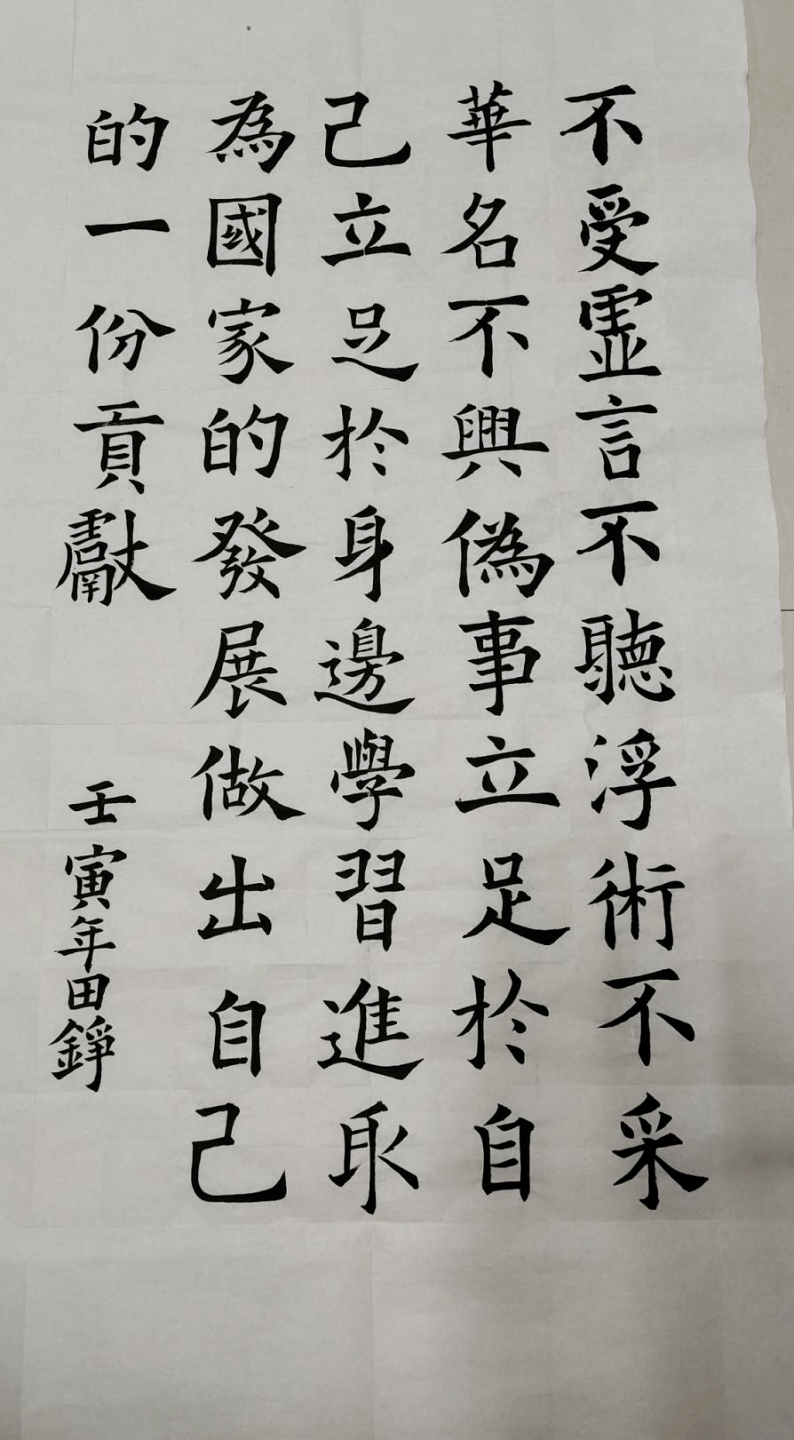 不受虛言不聽浮術不采
華名不興偽事立足於自
己立足於身邊學習進取
為國家的發展做出自己
的一份貢獻
壬寅年田錚